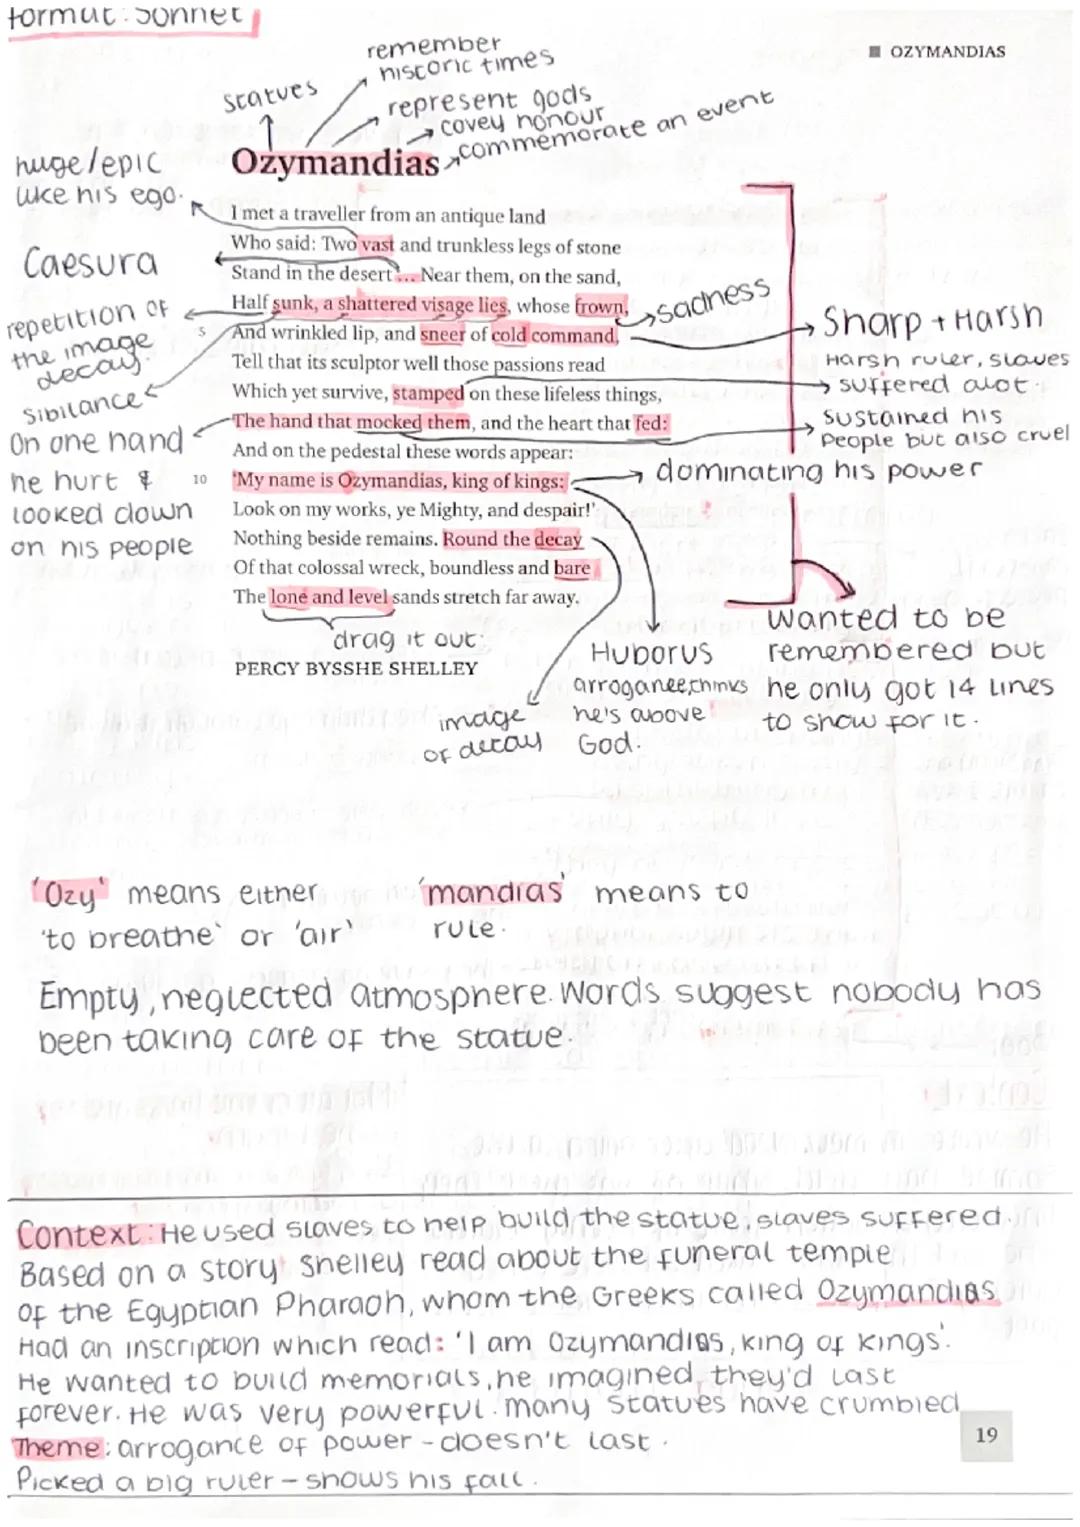 format: Sonnet
■ OZYMANDIAS
remember
historic times
statues
represent gods
covey honour
commemorate an event
huge/epic
like his ego.
Ozymandias
I met a traveller from an antique land
Who said: Two vast and trunkless legs of stone
Caesura
Stand in the desert ... Near them, on the sand,
Half sunk, a shattered visage lies, whose frown,
sadness
repetition of
the image
decay.
5 And wrinkled lip, and sneer of cold command,
Sharp + Harsh
Tell that its sculptor well those passions read
Harsh ruler, slaves
suffered alot.
sibilance
Which yet survive, stamped on these lifeless things,
The hand that mocked them, and the heart that fed:
sustained his
people but also cruel
On one hand
he hurt &
looked down
on his people
And on the pedestal these words appear:
dominating his power
10 'My name is Ozymandias, king of kings:
Look on my works, ye Mighty, and despair!'
Nothing beside remains. Round the decay
Of that colossal wreck, boundless and bare
The lone and level sands stretch far away.
drag it out.
PERCY BYSSHE SHELLEY
image
of decay
Huborus
arrogance, thinks
he's above
God.
Wanted to be
remembered but
he only got 14 lines
to show for it.
'Ozy' means either
'to breathe' or 'air'
'mandias' means to
rule.
Empty, neglected atmosphere. Words suggest nobody has
been taking care of the statue.
Context: He used slaves to help build the statue, slaves suffered.
Based on a story Shelley read about the funeral temple
of the Egyptian Pharaoh, whom the Greeks called Ozymandias
Had an inscription which read: 'I am Ozymandias, king of kings'.
He wanted to build memorials, he imagined they'd last
forever. He was very powerful. many statues have crumbled
Theme: arrogance of power - doesn't last.
Picked a big ruler - shows his fall.
19